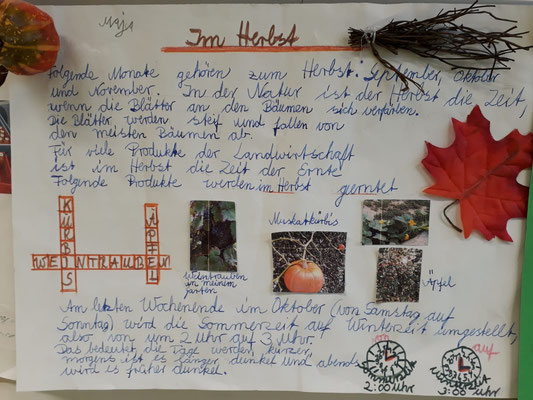 Maja
Im Herbst
Folgende Monate gehören zum Herbst: September, Oktober
und November. In der Natur ist der Herbst die Zeit,
wenn die Blätter an den Bäumen sich verfärben.
Die Blätter werden steif und fallen von
den meisten Bäumen ab.
Für viele Produkte der Landwirtschaft
ist im Herbst die Zeit der Ernte.
Folgende Produkte werden im Herbst geerntet
KÜRBIS
ÄPFEL
WEINTRAUBEN
Muskatkürbis
Weintrauben
in meinem
garten
Äpfel
Am letzten Wochenende im Oktober (von Samstag auf
Sonntag) wird die Sommerzeit auf Winterzeit umgestellt,
also von um 2 Uhr auf 3 Uhr.
Das bedeutet die Tage werden kürzer,
morgens ist es länger dunkel und abends
wird es früher dunkel.
von
2:00 uhr
auf
3:00 uhr